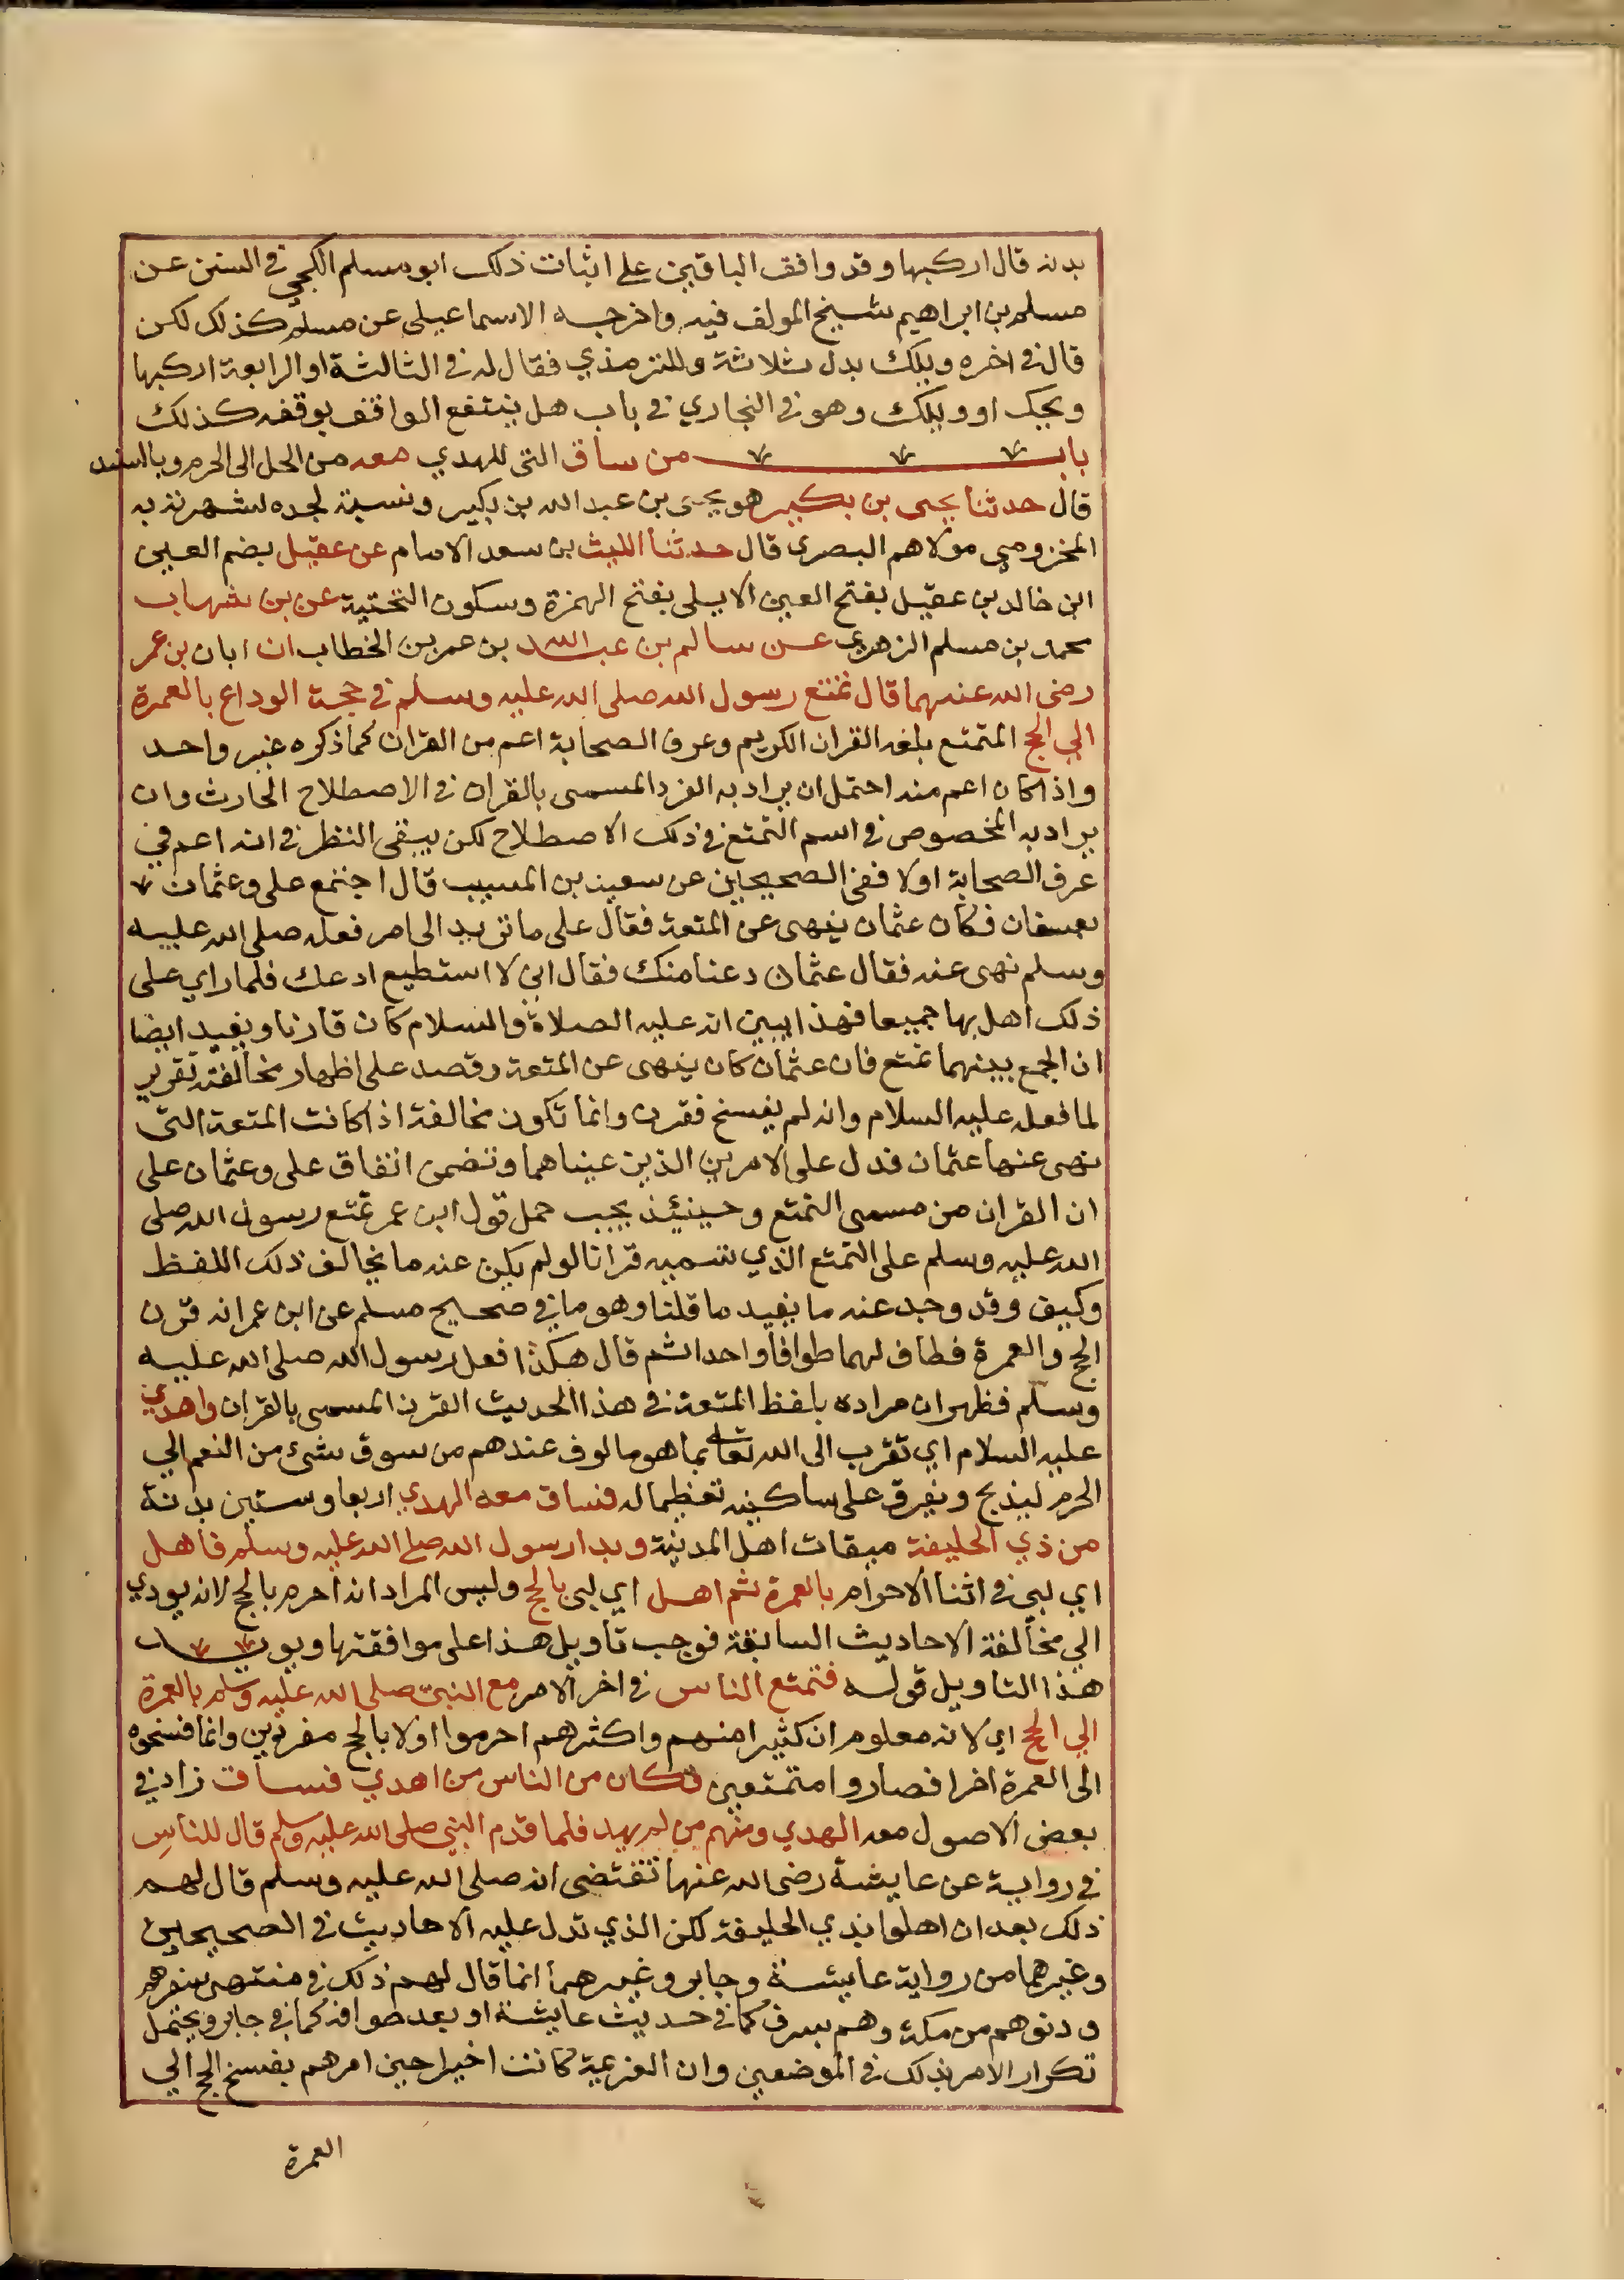 بدنة قال اركبها وقد وافق الباقين على اثبات ذلك ابو مسلم الكجي في السنن عن
مسلم بن ابراهيم شيخ المولف فيه واخرجه الاسماعيلي عن مسلم كذلك لكن
قال في اخره ويلك بدل ثلاثة وللترمذي فقال له في الثالثة او الرابعة اركبها
ويحك او ويلك وهو في البخاري في باب هل ينتفع الواقف بوقفه كذلك
باب من ساق التي للهدي معه من الحل الى الحرم وبالسند
قال حدثنا يحيى بن بكير هو يحيى بن عبد الله بن بكير ونسبة لجده لشهرته به
المخزومي مولاهم البصري قال حدثنا الليث بن سعد الامام عن عقيل بضم العين
ابن خالد بن عقيل بفتح العين الايلي بفتح الهمزة وسكون التحتية عن بن شهاب
محمد بن مسلم الزهري عن سالم بن عبد الله بن عمر بن الخطاب ان ابان بن عمر
رضي الله عنهما قال تمتع رسول الله صلى الله عليه وسلم في حجة الوداع بالعمرة
الي الحج المتمتع بلغه القران الكريم وعرف الصحابة اعم من القران كما ذكره غير واحد
واذا كان اعم منه احتمل ان يراد به الفرد المسمى بالقران في الاصطلاح الحادث وان
يراد به المخصوص في اسم التمتع في ذلك الاصطلاح لكن يبقى النظر في انه اعم في
عرف الصحابة اولا ففي الصحيحين عن سعيد بن المسيب قال اجتمع علي وعثمان
بعسفان فكان عثمان ينهى عن المتعة فقال علي ما تريد الى امر فعله صلى الله عليه
وسلم نهى عنه فقال عثمان دعنا منك فقال اني لا استطيع ادعك فلما راي علي
ذلك اهل بها جميعا فهذا يبين انه عليه الصلاة والسلام كان قارنا ويفيد ايضا
ان الجمع بينهما تمتع فان عثمان كان ينهى عن المتعة وقصد علي اظهار مخالفته تقرير
لما فعله عليه السلام وانه لم يفسخ فقرن وانما تكون مخالفة اذا كانت المتعة التي
نهى عنها عثمان فدل على الامرين الذين عيناهما وتضمن اتفاق علي وعثمان على
ان القران من مسمى التمتع وحينيئذ يجب حمل قول ابن عمر تمتع رسول الله صلى
الله عليه وسلم على التمتع الذي نسميه قرانا لو لم يكن عنه ما يخالف ذلك اللفظ
وكيف وقد وجد عنه ما يفيد ما قلنا وهو ما في صحيح مسلم عن ابن عمر انه قرن
الحج والعمرة فطاف لهما طوافا واحدا ثم قال هكذا فعل رسول الله صلى الله عليه
وسلم فظهر ان مراده بلفظ المتعة في هذا الحديث القرن المسمى بالقران واهدي
عليه السلام اي تقرب الى الله تعالى بما هو مالوف عندهم من سوق شئ من النعم الي
الحرم ليذبح ويفرق على ساكنيه تعظيما له فساق معه الهدي اربعا وستين بدنة
من ذي الحليفة ميقات اهل المدينة وبدا رسول الله صلى الله عليه وسلم فاهل
اي لبي في اثنا الاحرام بالعمرة ثم اهل اي لبى بالحج وليس المراد انه احرم بالحج لانه يودي
الي مخالفة الاحاديث السابقة فوجب تاويل هذا على موافقتها ويويد
هذا التاويل قوله فتمتع الناس في اخر الامر مع النبي صلى الله عليه وسلم بالعمرة
الي الحج اي لانه معلوم ان كثيرا منهم واكثرهم احرموا اولا بالحج مفردين وانما فسخوه
الى العمرة اخرا فصاروا متمتعين فكان من الناس من اهدي فساق زاد في
بعض الاصول معه الهدي ومنهم من لم يهد فلما قدم النبي صلى الله عليه وسلم قال للناس
في رواية عن عايشة رضي الله عنها تقتضى انه صلى الله عليه وسلم قال لهم
ذلك بعد ان اهلوا بذي الحليفة لكن الذي تدل عليه الاحاديث في الصحيحين
وغيرهما من رواية عايشة وجابر وغيرهما انما قال لهم ذلك في منتهى سفرهم
ودنوهم من مكة وهم بسرف كما في حديث عايشة او بعد طوافه كما في جابر ويحتمل
تكرار الامر بذلك في الموضعين وان العزيمة كانت اخيرا حين امرهم بفسخ الحج الي
العمرة